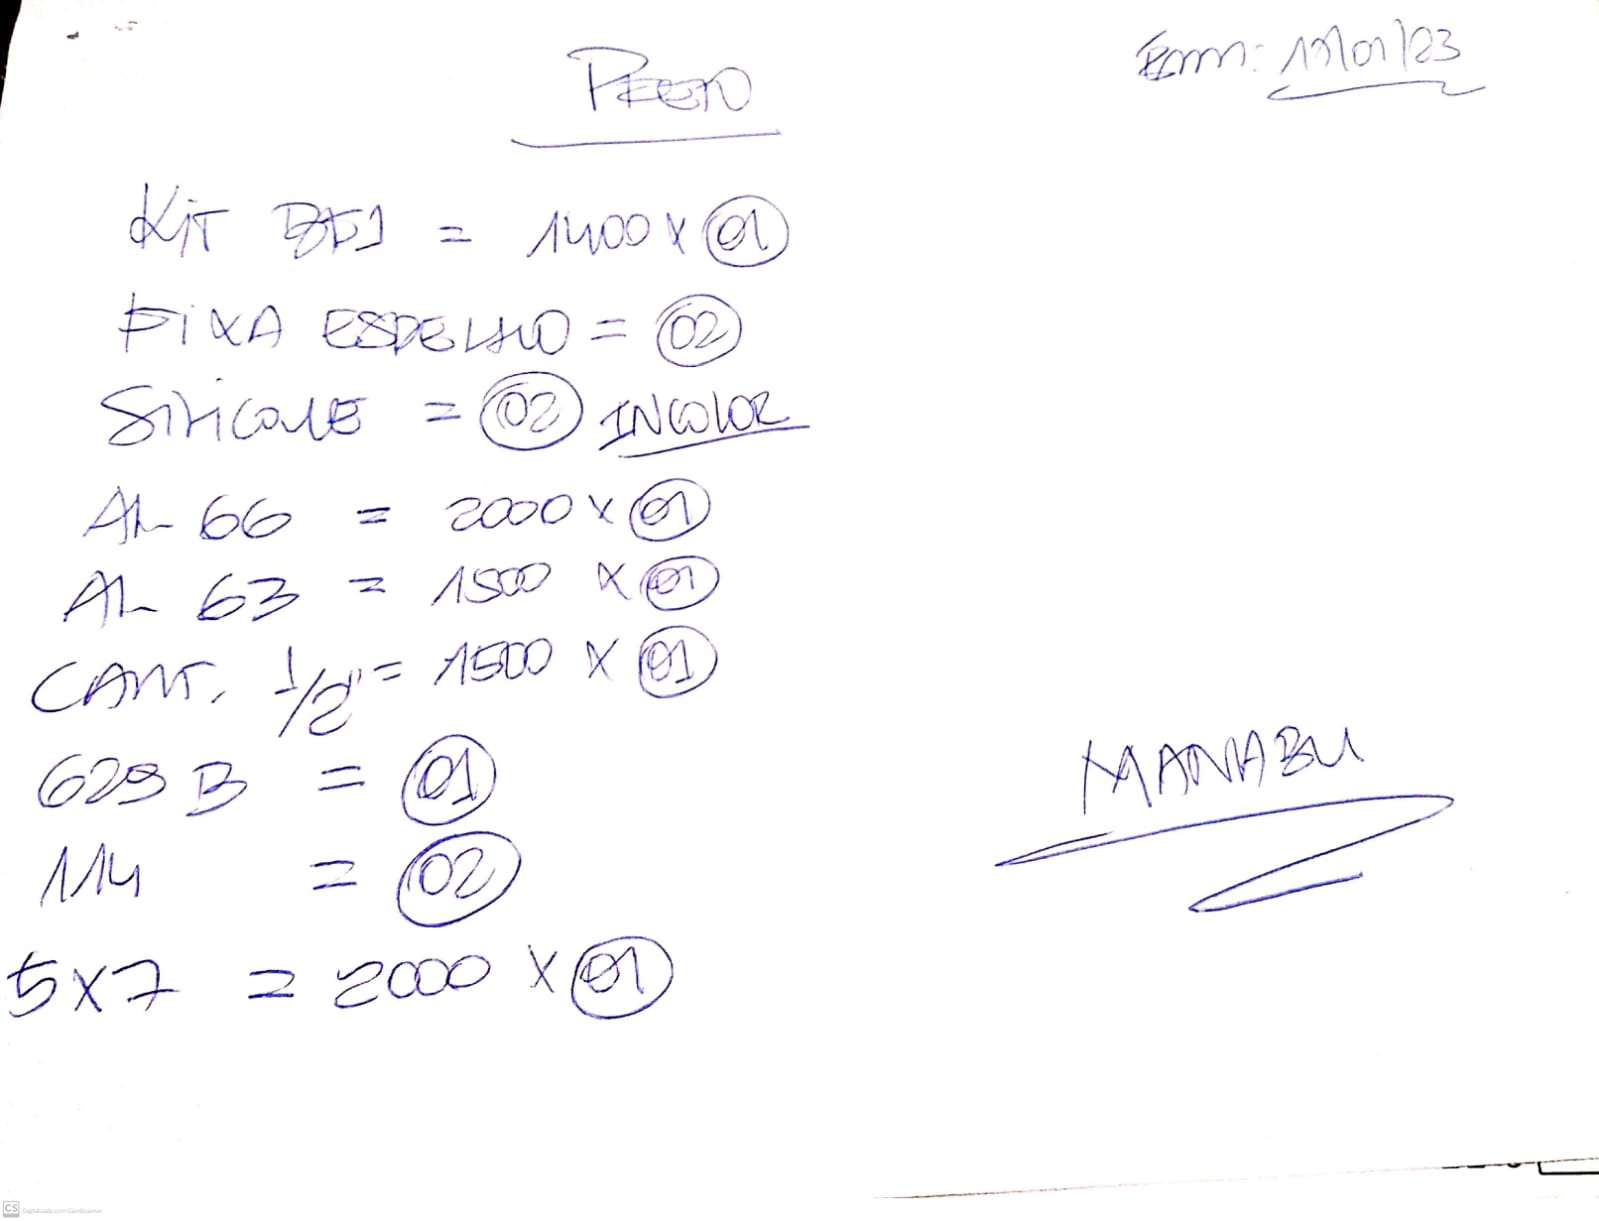 PRETO
Em: 17/01/23
KiT BF1 = 1400 x 01
FiXA ESPELHO = 02
SiLiCONE = 02 INCOLOR
AL 66 = 2000 x 01
AL 63 = 1500 x 01
CANT. 1/2" = 1500 x 01
629 B = 01
114 = 02
5x7 = 2000 x 01
MANABU
CS Digitalizado com CamScanner